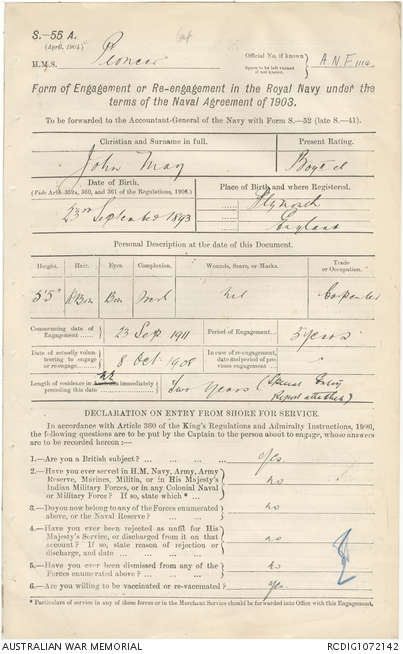 S.—55 A.
(April, 1904)
H.M.S. Pioneer
Official No. if known
Space to be left vacant if not known.
A.N.F 1114
Form of Engagement or Re-engagement in the Royal Navy under the
terms of the Naval Agreement of 1903.
To be forwarded to the Accountant-General of the Navy with Form S.—52 (late S.—41).
Christian and Surname in full.
Present Rating.
John May
Boy 2 cl
Date of Birth.
(Vide Arts. 352a, 360, and 361 of the Regulations, 1906.)
Place of Birth and where Registered.
23rd September 1893
Plymouth
England
Personal Description at the date of this Document.
Height. Hair. Eyes. Complexion. Wounds, Scars, or Marks. Trade or Occupation.
5'5" Bn Med Nil Carpenter
Commencing date of Engagement
23 Sep 1911
Period of Engagement
5 years
Date of actually volunteering to engage or re-engage
8 Oct 1908
In case of re-engagement, date and period of previous engagement
Length of residence in N.Z. immediately preceding this date
Two years (Special Entry
Report attached)
DECLARATION ON ENTRY FROM SHORE FOR SERVICE.
In accordance with Article 360 of the King's Regulations and Admiralty Instructions, 1906,
the following questions are to be put by the Captain to the person about to engage, whose answers
are to be recorded herein :—
1.—Are you a British subject? Yes
2.—Have you ever served in H.M. Navy, Army, Army
Reserve, Marines, Militia, or in His Majesty's
Indian Military Forces, or in any Colonial Naval
or Military Force? If so, state which * no
3.—Do you now belong to any of the Forces enumerated
above, or the Naval Reserve? no
4.—Have you ever been rejected as unfit for His
Majesty's Service, or discharged from it on that
account? If so, state reason of rejection or
discharge, and date no
5.—Have you ever been dismissed from any of the
Forces enumerated above? no
6.—Are you willing to be vaccinated or re-vaccinated? Yes
* Particulars of service in any of these forces or in the Merchant Service should be forwarded into Office with this Engagement.
AUSTRALIAN WAR MEMORIAL
RCDIG1072142